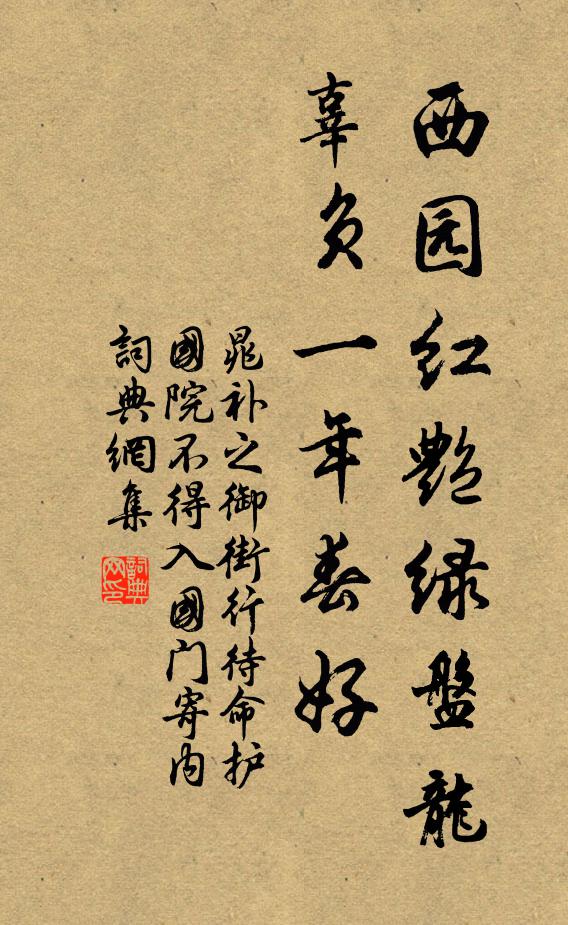 西园红艷绿盤龍
辜负一年春好
晁补之御街行待命护
國院不得入國门寄内
詞典網集
詞典網印